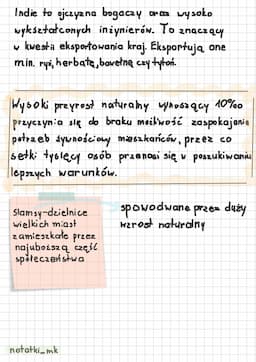 Indie to ojczyzna bogaczy oraz wysoko
wykształconych inżynierów. To znaczący
w kwestii eksportowania kraj. Eksportują one
min. ryż, herbatę, bawełnę czy tytoń.
Wysoki przyrost naturalny wynoszący 10‰
przyczynia się do braku możliwość zaspokajania
potrzeb żywnościowy mieszkańców, przez co
setki tysięcy osób przenosi się w poszukiwaniu
lepszych warunków.
Slamsy-dzielnice
wielkich miast
zamieszkałe przez
najuboższą część
społeczeństwa
spowodwane przez duży
wzrost naturalny
notatki_mk